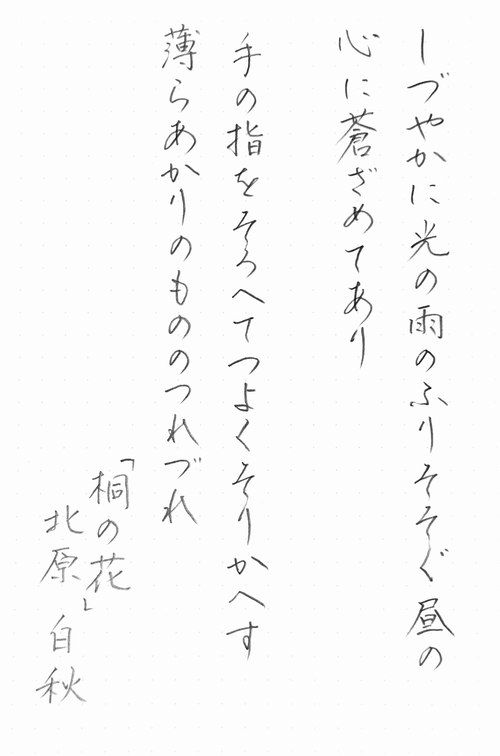 しづやかに光の雨のふりそそぐ昼の
心に蒼ざめてあり
手の指をそろへてつよくそりかへす
薄らあかりのもののつれづれ
「桐の花」
北原白秋